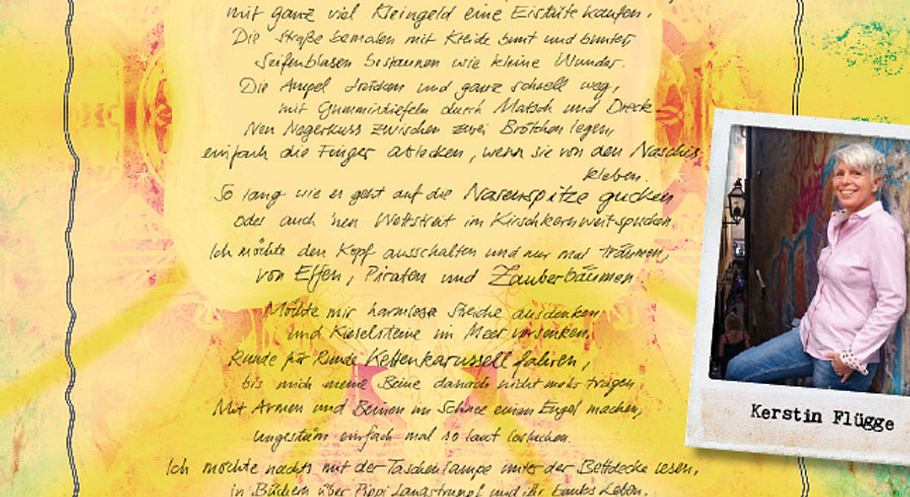 mit ganz viel Kleingeld eine Eistüte kaufen.
Die Straße bemalen mit Kreide bunt und bunter,
Seifenblasen bestaunen wie kleine Wunder.
Die Ampel drücken und ganz schnell weg,
mit Gummistiefeln durch Matsch und Dreck.
Nen Negerkuss zwischen zwei Brötchen legen,
einfach die Finger ablecken, wenn sie von den Naschis
kleben.
So lang wie es geht auf die Nasenspitze gucken
oder auch 'nen Wettstreit im Kirschkernweitspucken.
Ich möchte den Kopf ausschalten und nur mal träumen,
von Elfen, Piraten und Zauberbäumen.
Möchte mir harmlose Streiche ausdenken
und Kieselsteine im Meer versenken,
Runde für Runde Kettenkarussell fahren,
bis mich meine Beine danach nicht mehr tragen.
Mit Armen und Beinen im Schnee einen Engel machen,
ungestüm einfach mal so laut loslachen.
Ich möchte nachts mit der Taschenlampe unter der Bettdecke lesen,
in Büchern über Pippi Langstrumpf und ihr buntes Leben.
Kerstin Flügge